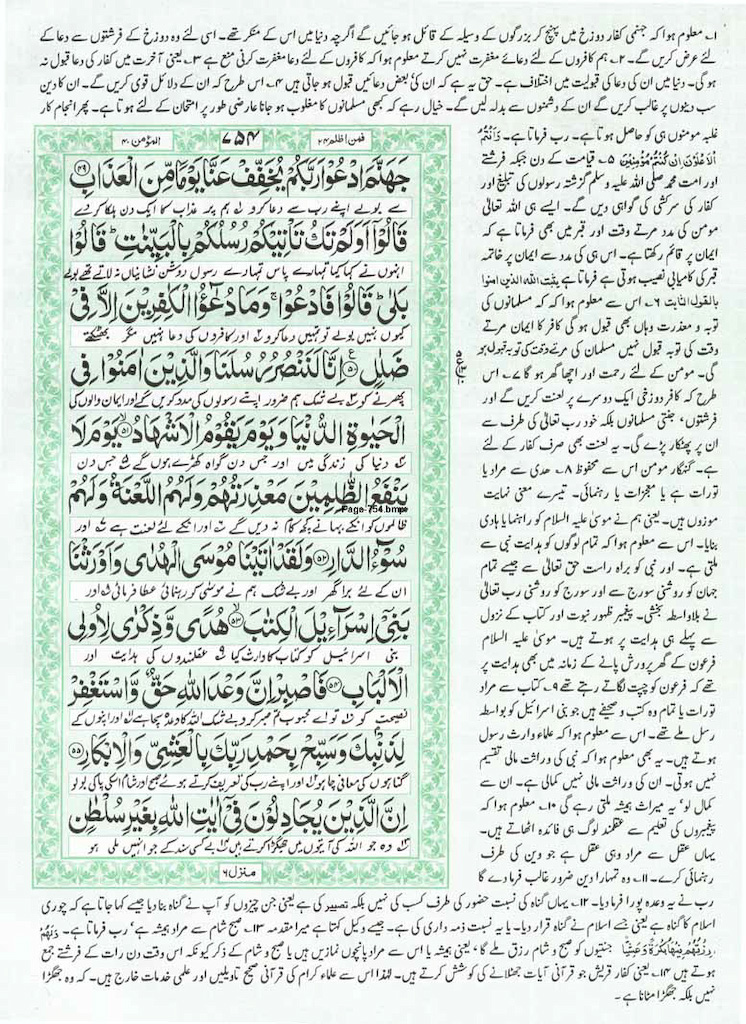 ۱۔ معلوم ہوا کہ جہنمی کفار دوزخ میں پہنچ کر بزرگوں کے وسیلہ کے قائل ہو جائیں گے اگرچہ دنیا میں اس کے منکر تھے۔ اسی لئے وہ دوزخ کے فرشتوں سے دعا کے
لئے عرض کریں گے۔ ۲۔ ہم کافروں کے لئے دعائے مغفرت نہیں کرتے معلوم ہوا کہ کافروں کے لئے دعا مغفرت کرنی منع ہے ۳۔ یعنی آخرت میں کفار کی دعا قبول نہ
ہو گی۔ دنیا میں ان کی دعا کی قبولیت میں اختلاف ہے۔ حق یہ ہے کہ ان کی بعض دعائیں قبول ہو جاتی ہیں ۴۔ اس طرح کہ ان کے دلائل قوی کریں گے۔ ان کا دین
سب دینوں پر غالب کریں گے ان کے دشمنوں سے بدلہ لیں گے۔ خیال رہے کہ کبھی مسلمانوں کا مغلوب ہو جانا عارضی طور پر امتحان کے لئے ہوتا ہے۔ پھر انجام کار
غلبہ مومنوں ہی کو حاصل ہوتا ہے۔ رب فرماتا ہے۔ وَاَنْتُمُ
الْاَعْلَوْنَ اِنْ كُنْتُمْ مُّؤْمِنِيْنَ ۵۔ قیامت کے دن جبکہ فرشتے
اور امت محمد صلی اللہ علیہ وسلم گزشتہ رسولوں کی تبلیغ اور
کفار کی سرکشی کی گواہی دیں گے۔ ایسے ہی اللہ تعالیٰ
مومن کی مدد مرتے وقت اور قبر میں بھی فرماتا ہے کہ
ایمان پر قائم رکھتا ہے۔ اس ہی کی مدد سے ایمان پر خاتمہ
قبر کی کامیابی نصیب ہوتی ہے فرماتا ہے یثبت اللہ الذین امنوا
بالقول الثابت ۶۔ اس سے معلوم ہوا کہ کہ مسلمانوں کی
توبہ و معذرت وہاں بھی قبول ہو گی کافر کا ایمان مرتے
وقت کی توبہ قبول نہیں مسلمان کی مرتے وقت کی توبہ قبول ہو
گی۔ مومن کے لئے رحمت اور اچھا گھر ہو گا ۷۔ اس
طرح کہ کافر دوزخی ایک دوسرے پر لعنت کریں گے اور
فرشتوں، جنتی مسلمانوں بلکہ خود رب تعالیٰ کی طرف سے
ان پر پھٹکار پڑے گی۔ یہ لعنت بھی صرف کفار کے لئے
ہے۔ گنہگار مومن اس سے محفوظ ۸۔ ھدی سے مراد یا
تورات ہے یا معجزات یا رہنمائی۔ تیسرے معنی نہایت
موزوں ہیں۔ یعنی ہم نے موسیٰ علیہ السلام کو راہنما یا ہادی
بنایا۔ اس سے معلوم ہوا کہ تمام لوگوں کو ہدایت نبی سے
ملتی ہے۔ اور نبی کو براہ راست حق تعالیٰ سے جیسے تمام
جہان کو روشنی سورج سے اور سورج کو روشنی رب تعالیٰ
نے بلاواسطہ بخشی۔ پیغمبر ظہور نبوت اور کتاب کے نزول
سے پہلے ہی ہدایت پر ہوتے ہیں۔ موسیٰ علیہ السلام
فرعون کے گھر پرورش پانے کے زمانہ میں بھی ہدایت پر
تھے کہ فرعون کو چپت لگاتے رہتے تھے ۹۔ کتاب سے مراد
تورات یا تمام وہ کتب و صحیفے ہیں جو بنی اسرائیل کو بواسطہ
رسل ملے تھے۔ اس سے معلوم ہوا کہ علماء وارث رسول
ہوتے ہیں۔ یہ بھی معلوم ہوا کہ نبی کی وراثت مالی تقسیم
نہیں ہوتی۔ ان کی وراثت مالی نہیں کمالی ہے۔ ان سے
کمال لو' یہ میراث ہمیشہ ملتی رہے گی ۱۰۔ معلوم ہوا کہ
پیغمبروں کی تعلیم سے عقلمند لوگ ہی فائدہ اٹھاتے ہیں۔
یہاں عقل سے مراد وہی عقل ہے جو دین کی طرف
رہنمائی کرے۔ ۱۱۔ وہ تمہارا دین ضرور غالب فرمادے گا
فمن اظلم ۲۴ ۷۵۴ المؤمن ۴۰
جَهَنَّمَ ادْعُوْا رَبَّكُمْ يُخَفِّفْ عَنَّا يَوْمًا مِّنَ الْعَذَابِ ۴۹
سے بولے اپنے رب سے دعا کرو ہم پر عذاب کا ایک دن ہلکا کر دے
قَالُوْۤا اَوَلَمْ تَكُ تَاْتِيْكُمْ رُسُلُكُمْ بِالْبَيِّنٰتِ ؕ قَالُوْا
انہوں نے کہا کیا تمہارے پاس تمہارے رسول روشن نشانیاں نہ لاتے تھے بولے
بَلٰى ؕ قَالُوْا فَادْعُوْا ۚ وَمَا دُعٰٓؤُا الْكٰفِرِيْنَ اِلَّا فِيْ
کیوں نہیں بولے تو تمہیں دعا کرو اور کافروں کی دعا نہیں مگر بھٹکتے
ضَلٰلٍ ۵۰ اِنَّا لَنَنْصُرُ رُسُلَنَا وَالَّذِيْنَ اٰمَنُوْا فِي
پھرنے کو بے شک ہم ضرور اپنے رسولوں کی مدد کریں گے اور ایمان والوں کی
الْحَيٰوةِ الدُّنْيَا وَيَوْمَ يَقُوْمُ الْاَشْهَادُ ۵۱ يَوْمَ لَا
دنیا کی زندگی میں اور جس دن گواہ کھڑے ہوں گے جس دن
يَنْفَعُ الظّٰلِمِيْنَ مَعْذِرَتُهُمْ وَلَهُمُ اللَّعْنَةُ وَلَهُمْ
Page-754.bmp
ظالموں کو انکے بہانے کچھ کام نہ دیں گے اور انکے لئے لعنت ہے اور
سُوْٓءُ الدَّارِ ۵۲ وَلَقَدْ اٰتَيْنَا مُوْسَى الْهُدٰى وَاَوْرَثْنَا
ان کے لئے برا گھر اور بے شک ہم نے موسیٰ کو رہنمائی عطا فرمائی اور
بَنِيْٓ اِسْرَآءِيْلَ الْكِتٰبَ ۵۳ هُدًى وَّذِكْرٰى لِاُولِي
بنی اسرائیل کو کتاب کا وارث کیا عقلمندوں کی ہدایت اور
الْاَلْبَابِ ۵۴ فَاصْبِرْ اِنَّ وَعْدَ اللّٰهِ حَقٌّ وَّاسْتَغْفِرْ
نصیحت کو تو اے محبوب تم صبر کرو بے شک اللہ کا وعدہ سچا ہے اور اپنوں کے
لِذَنْۢبِكَ وَسَبِّحْ بِحَمْدِ رَبِّكَ بِالْعَشِيِّ وَالْاِبْكَارِ ۵۵
گناہوں کی معافی چاہو اور اپنے رب کی تعریف کرتے ہوئے صبح اور شام اسکی پاکی بولو
اِنَّ الَّذِيْنَ يُجَادِلُوْنَ فِيْٓ اٰيٰتِ اللّٰهِ بِغَيْرِ سُلْطٰنٍ
وہ جو اللہ کی آیتوں میں جھگڑا کرتے ہیں بے کسی سند کے جو انہیں ملی ہو
منزل ۶
رب نے یہ وعدہ پورا فرمادیا۔ ۱۲۔ یہاں گناہ کی نسبت حضور کی طرف کسب کی نہیں بلکہ تصییر کی ہے یعنی جن چیزوں کو آپ نے گناہ بنا دیا جیسے کہا جاتا ہے کہ چوری
اسلام کا گناہ ہے یعنی جسے اسلام نے گناہ قرار دیا۔ یا یہ نسبت ذمہ داری کی ہے۔ جیسے وکیل کہتا ہے میرا مقدمہ ۱۳۔ صبح شام سے مراد ہمیشہ ہے' رب فرماتا ہے۔ وَلَهُمْ
رِزْقُهُمْ فِيْهَا بُكْرَةً وَّعَشِيًّا جنتیوں کو صبح و شام رزق ملے گا' یعنی ہمیشہ یا اس سے مراد پانچوں نمازیں ہیں یا صبح و شام کے ذکر کیونکہ اس وقت دن رات کے فرشتے جمع
ہوتے ہیں ۱۴۔ یعنی کفار قریش جو قرآنی آیات جھٹلانے کی کوشش کرتے ہیں۔ لہٰذا اس سے علماء کرام کی قرآنی صحیح تاویلیں اور علمی خدمات خارج ہیں۔ کہ وہ جھگڑا
نہیں بلکہ جھگڑا مٹانا ہے۔